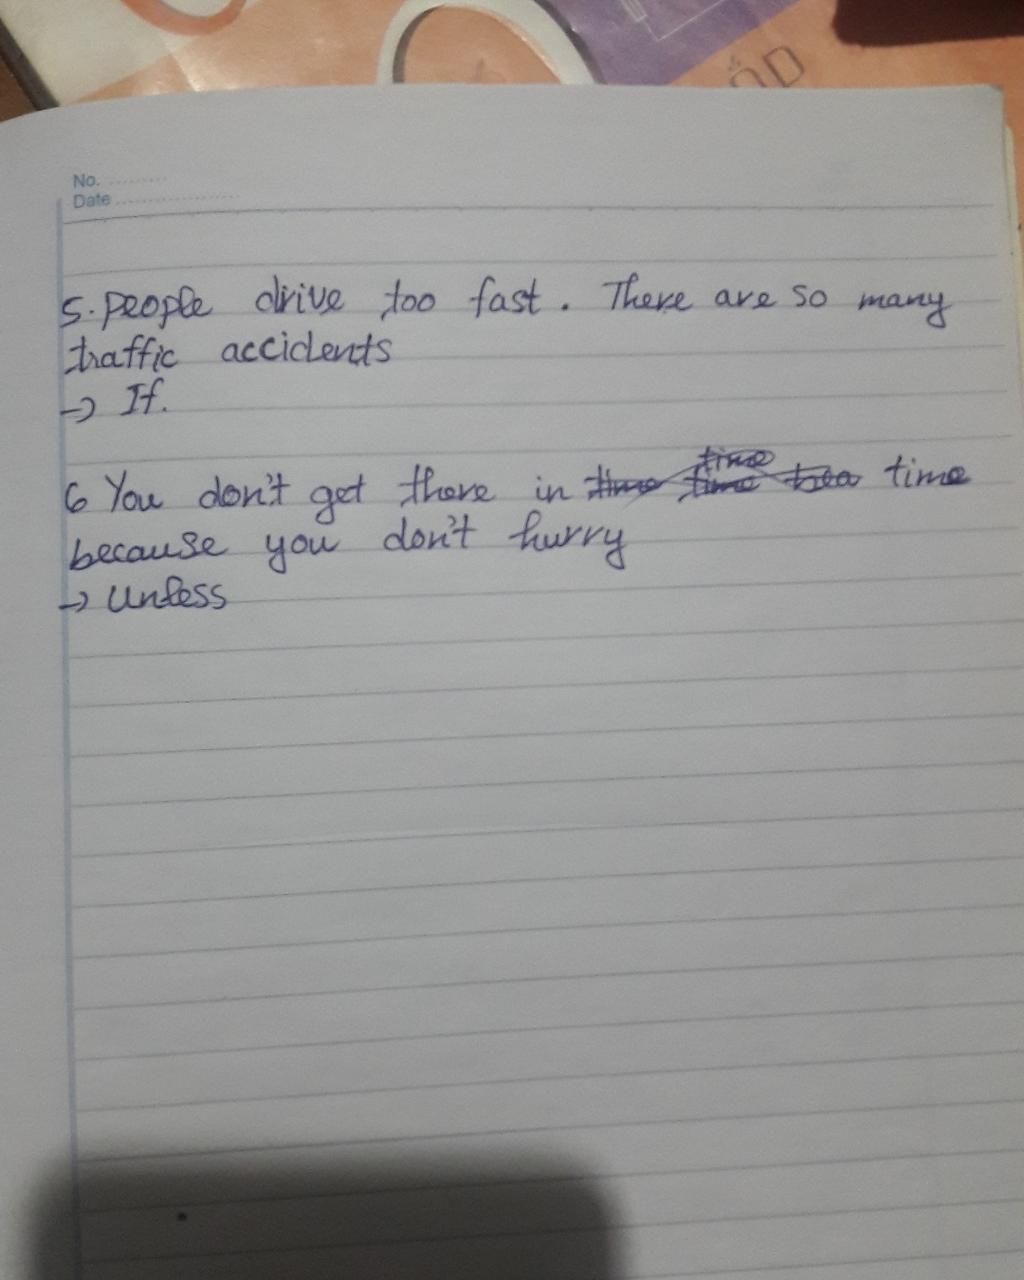 ỐD
No. .........
Date ...................
5. people drive too fast. There are so many
traffic accidents
→ If.
6 You don't get there in time time time bea time
because you don't hurry
→ Unless